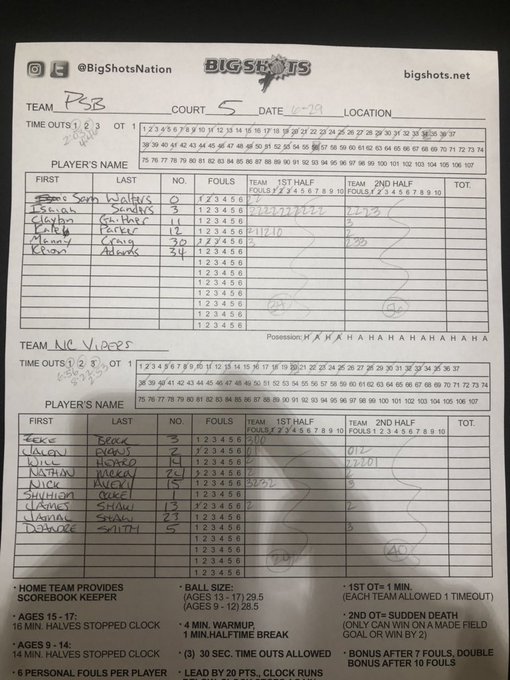 @BigShotsNation BIGSHOTS bigshots.net
TEAM PSB COURT 5 DATE 6-29 LOCATION
TIME OUTS 1 2 3 OT 1
1 2 3 4 5 6 7 8 9 10 11 12 13 14 15 16 17 18 19 20 21 22 23 24 25 26 27 28 29 30 31 32 33 34 35 36 37
38 39 40 41 42 43 44 45 46 47 48 49 50 51 52 53 54 55 56 57 58 59 60 61 62 63 64 65 66 67 68 69 70 71 72 73 74
75 76 77 78 79 80 81 82 83 84 85 86 87 88 89 90 91 92 93 94 95 96 97 98 99 100 101 102 103 104 105 106 107
PLAYER'S NAME
FIRST LAST NO. FOULS TEAM 1ST HALF TEAM 2ND HALF TOT.
FOULS 1 2 3 4 5 6 7 8 9 10 FOULS 1 2 3 4 5 6 7 8 9 10
Sam Walters 0 1 2 3 4 5 6 22
Isaiah Sanders 3 1 2 3 4 5 6 2223
Clayton Gaither 11 1 2 3 4 5 6 3
Kaleb Parker 12 1 2 3 4 5 6 211210 2
Manny Craig 30 1 2 3 4 5 6 3 233
Keion Adams 34 1 2 3 4 5 6
1 2 3 4 5 6
1 2 3 4 5 6
1 2 3 4 5 6
1 2 3 4 5 6
1 2 3 4 5 6
1 2 3 4 5 6
Posession: H A H A H A H A H A H A H A H A H A
TEAM NC VIPERS
TIME OUTS 1 2 3 OT 1
1 2 3 4 5 6 7 8 9 10 11 12 13 14 15 16 17 18 19 20 21 22 23 24 25 26 27 28 29 30 31 32 33 34 35 36 37
38 39 40 41 42 43 44 45 46 47 48 49 50 51 52 53 54 55 56 57 58 59 60 61 62 63 64 65 66 67 68 69 70 71 72 73 74
75 76 77 78 79 80 81 82 83 84 85 86 87 88 89 90 91 92 93 94 95 96 97 98 99 100 101 102 103 104 105 106 107
PLAYER'S NAME
FIRST LAST NO. FOULS TEAM 1ST HALF TEAM 2ND HALF TOT.
FOULS 1 2 3 4 5 6 7 8 9 10 FOULS 1 2 3 4 5 6 7 8 9 10
ZEKE BROCK 3 1 2 3 4 5 6 300
JALON EVANS 2 1 2 3 4 5 6 012
WILL HOWARD 14 1 2 3 4 5 6 22201
NATHAN 24 1 2 3 4 5 6 2 2
NICK AVERY 15 1 2 3 4 5 6 3232 3
1 1 2 3 4 5 6
JAMES SHAW 13 1 2 3 4 5 6 2 2
JAMAL SHAW 23 1 2 3 4 5 6
DEANDRE SMITH 5 1 2 3 4 5 6 3
1 2 3 4 5 6
1 2 3 4 5 6
1 2 3 4 5 6
40
· HOME TEAM PROVIDES SCOREBOOK KEEPER
· AGES 15 - 17:
16 MIN. HALVES STOPPED CLOCK
· AGES 9 - 14:
14 MIN. HALVES STOPPED CLOCK
· 6 PERSONAL FOULS PER PLAYER
· BALL SIZE:
(AGES 13 - 17) 29.5
(AGES 9 - 12) 28.5
· 4 MIN. WARMUP,
1 MIN.HALFTIME BREAK
· (3) 30 SEC. TIME OUTS ALLOWED
· LEAD BY 20 PTS., CLOCK RUNS
· 1ST OT= 1 MIN.
(EACH TEAM ALLOWED 1 TIMEOUT)
· 2ND OT= SUDDEN DEATH
(ONLY CAN WIN ON A MADE FIELD
GOAL OR WIN BY 2)
· BONUS AFTER 7 FOULS, DOUBLE
BONUS AFTER 10 FOULS